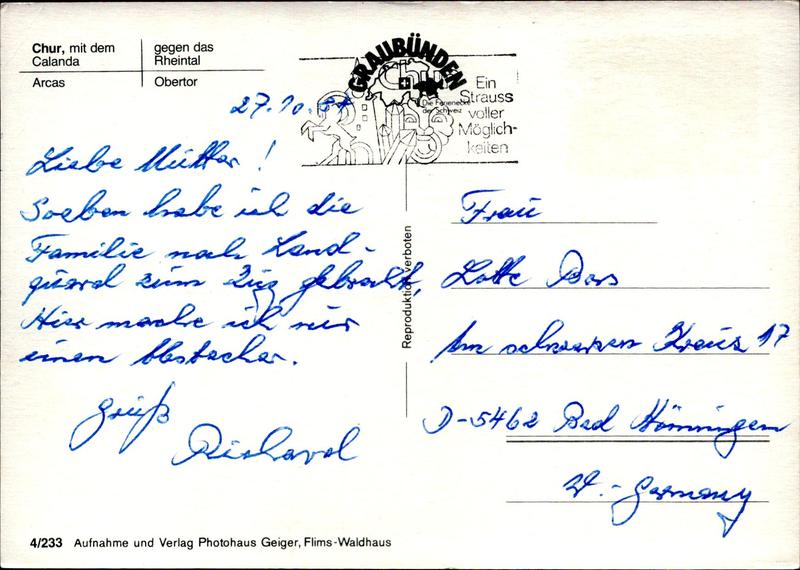 Chur, mit dem
Calanda
gegen das
Rheintal
Arcas
Obertor
GRAUBÜNDEN
Chur
Die Ferienecke
der Schweiz
Ein
Strauss
voller
Möglich-
keiten
27.10.87
Liebe Mutter!
Soeben habe ich die
Familie nach Land-
quard zum Zug gebracht.
Hier mache ich nur
einen Abstecher.
Gruß
Richard
Reproduktion verboten
Frau
Lotte
Am schwarzen Kreuz 17
D-5462 Bad Hönningen
W.-Germany
4/233 Aufnahme und Verlag Photohaus Geiger, Flims-Waldhaus